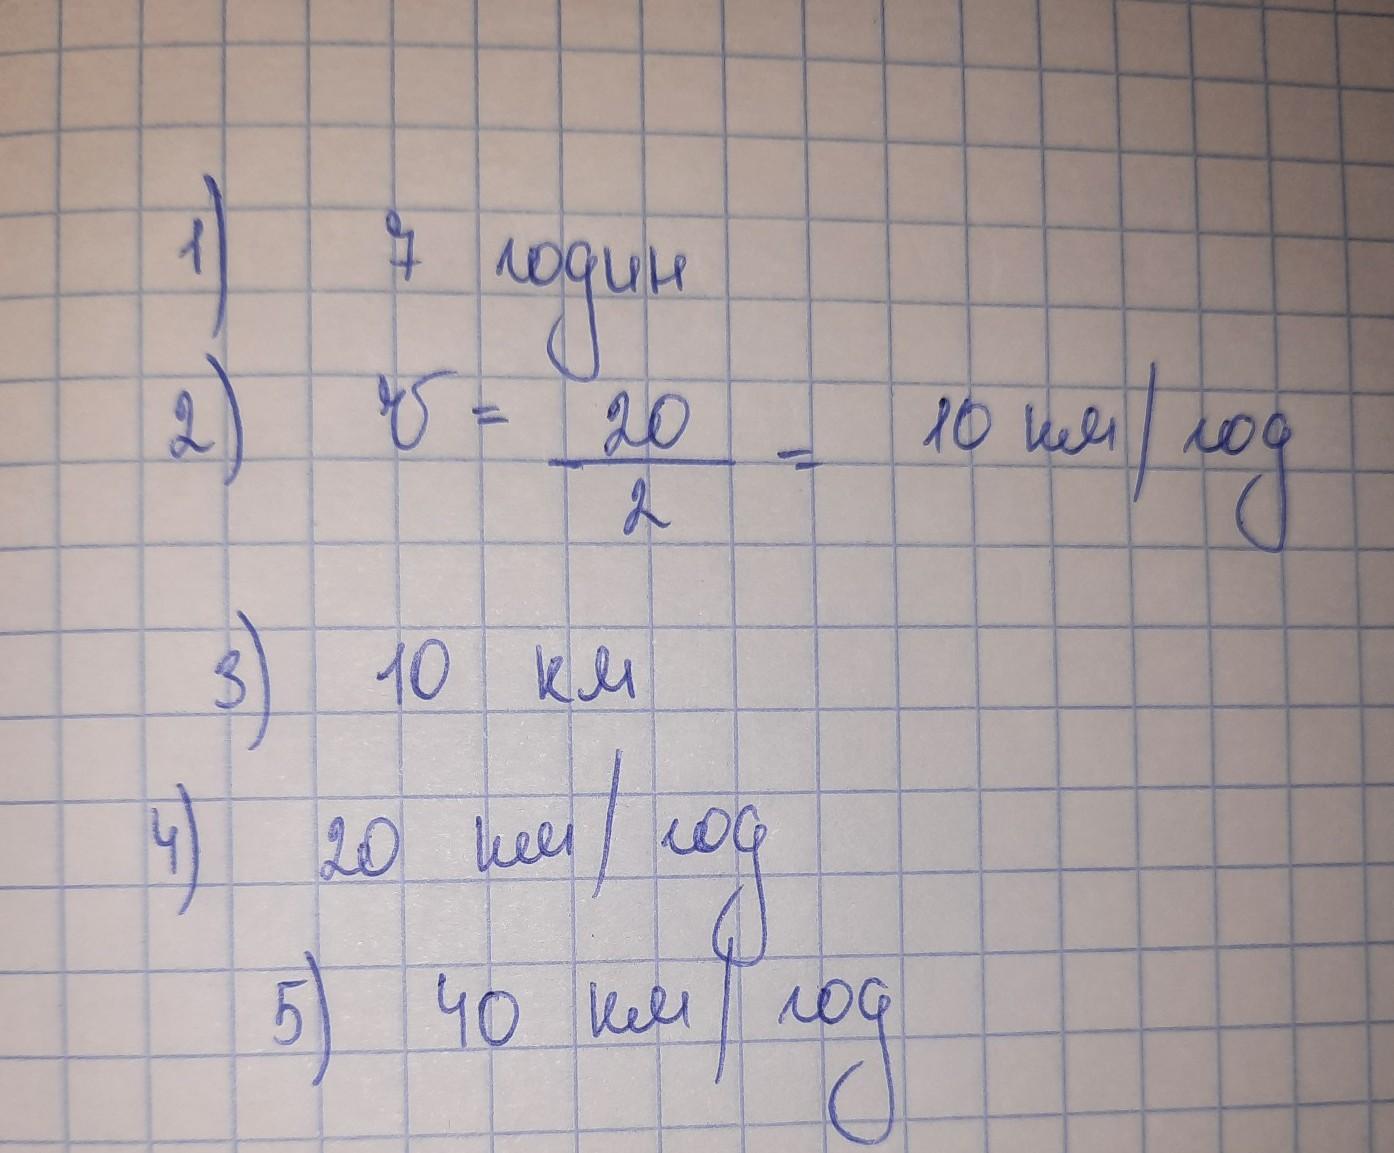 1) 7 годин
2) v = 20/2 = 10 км/год
3) 10 км
4) 20 км/год
5) 40 км/год